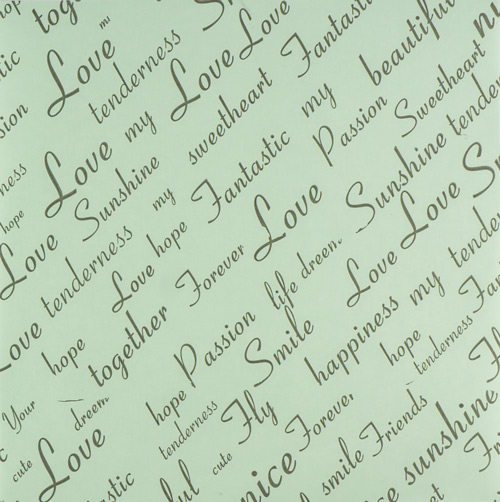 together
Love
mi
tenderness
Love Love
Fantastic
beautiful
my
sweetheart
my
Passion
Sweetheart
tender
Love
Sunshine
my
Fantastic
Love
Sunshine
Love
hope
Love
tenderness
Love hope
Forever
life dreem
Love
my
tender
Love
hope
together
Passion
Smile
happiness
hope
tenderness
Your
dreem
hope
tenderness
Fly
Forever
Friends
sunshine
cute
Love
cute
nice
smile